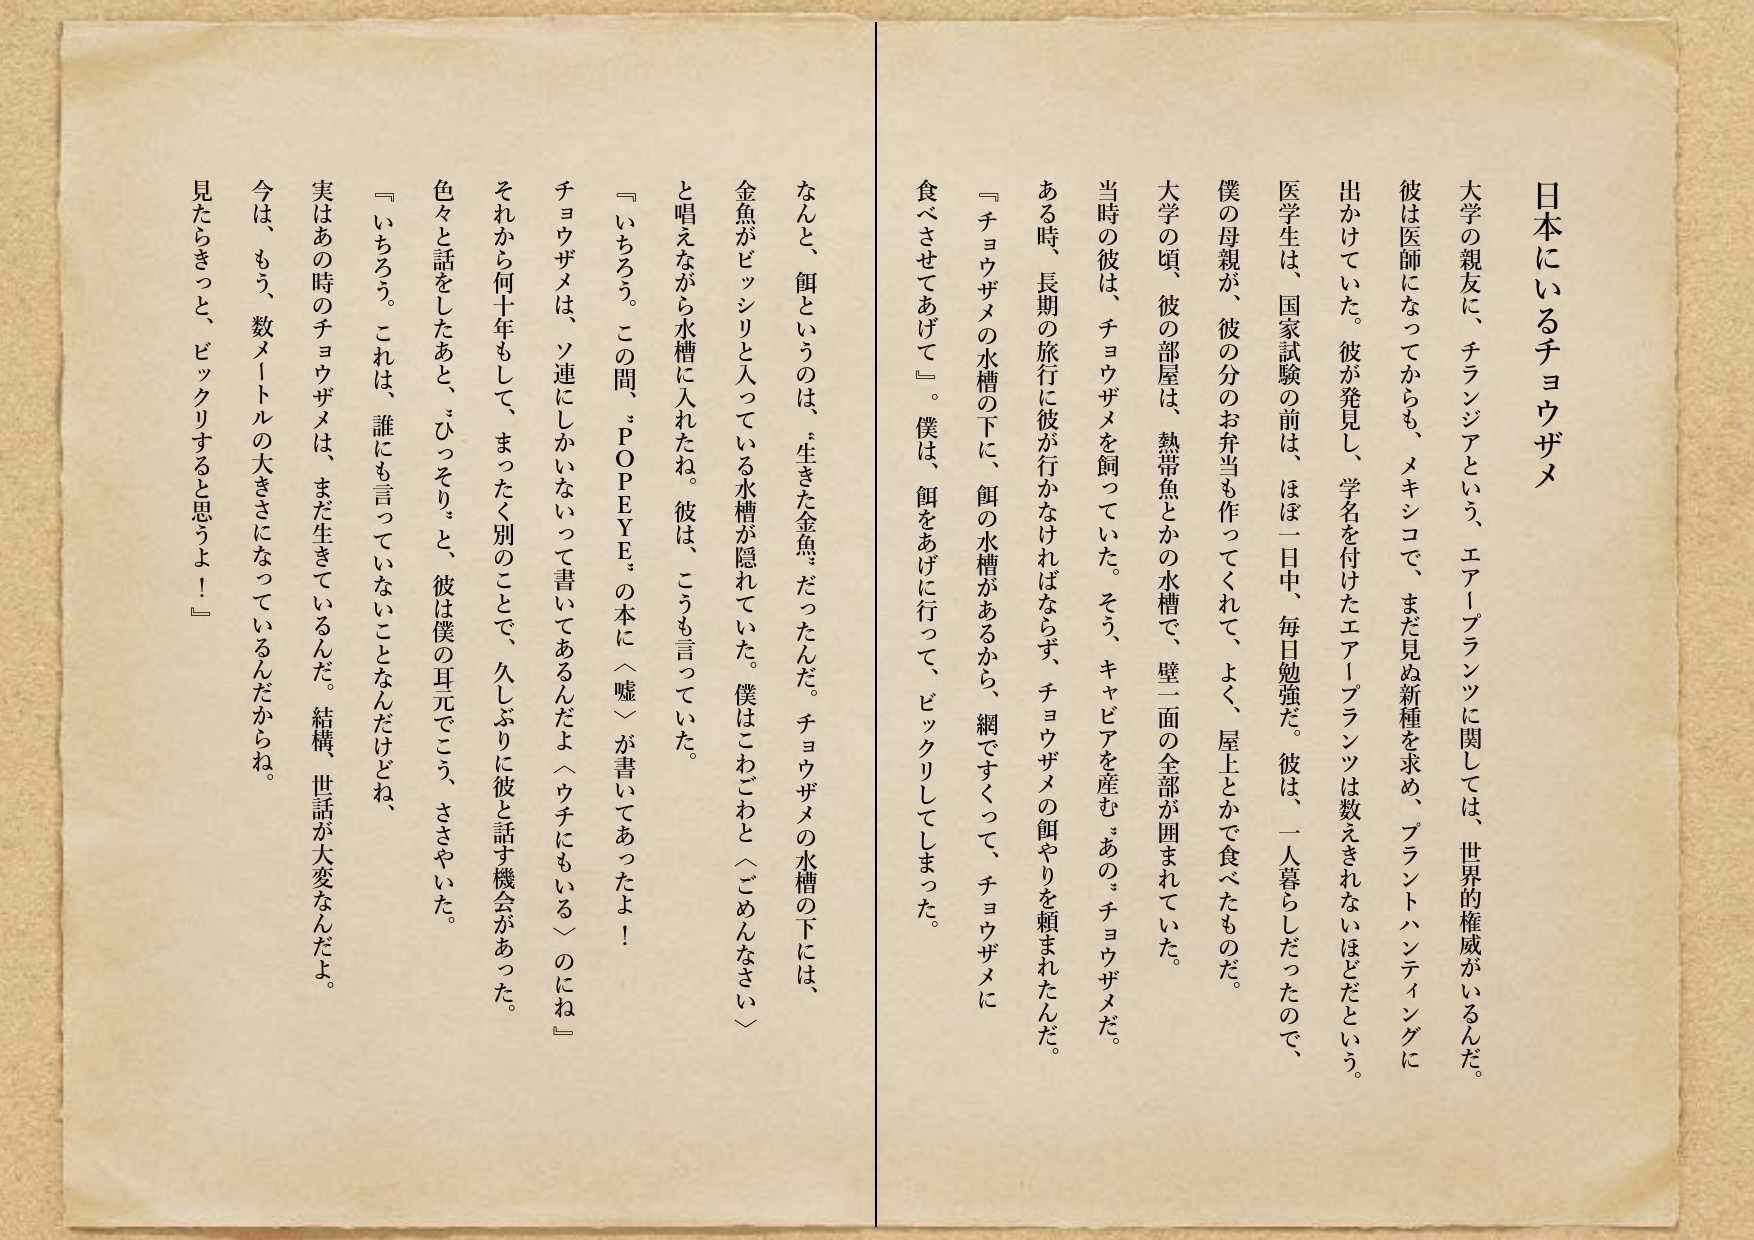 日本にいるチョウザメ
大学の親友に、チランジアという、エアープランツに関しては、世界的権威がいるんだ。
彼は医師になってからも、メキシコで、まだ見ぬ新種を求め、プラントハンティングに
出かけていた。彼が発見し、学名を付けたエアープランツは数えきれないほどだという。
医学生は、国家試験の前は、ほぼ一日中、毎日勉強だ。彼は、一人暮らしだったので、
僕の母親が、彼の分のお弁当も作ってくれて、よく、屋上とかで食べたものだ。
大学の頃、彼の部屋は、熱帯魚とかの水槽で、壁一面の全部が囲まれていた。
当時の彼は、チョウザメを飼っていた。そう、キャビアを産む〝あの〟チョウザメだ。
ある時、長期の旅行に彼が行かなければならず、チョウザメの餌やりを頼まれたんだ。
『チョウザメの水槽の下に、餌の水槽があるから、網ですくって、チョウザメに
食べさせてあげて』。僕は、餌をあげに行って、ビックリしてしまった。
なんと、餌というのは、〝生きた金魚〟だったんだ。チョウザメの水槽の下には、
金魚がビッシリと入っている水槽が隠れていた。僕はこわごわと〈ごめんなさい〉
と唱えながら水槽に入れたね。彼は、こうも言っていた。
『いちろう。この間、〝POPEYE〟の本に〈嘘〉が書いてあったよ！
チョウザメは、ソ連にしかいないって書いてあるんだよ〈ウチにもいる〉のにね』
それから何十年もして、まったく別のことで、久しぶりに彼と話す機会があった。
色々と話をしたあと、〝ひっそり〟と、彼は僕の耳元でこう、ささやいた。
『いちろう。これは、誰にも言っていないことなんだけどね、
実はあの時のチョウザメは、まだ生きているんだ。結構、世話が大変なんだよ。
今は、もう、数メートルの大きさになっているんだからね。
見たらきっと、ビックリすると思うよ！』